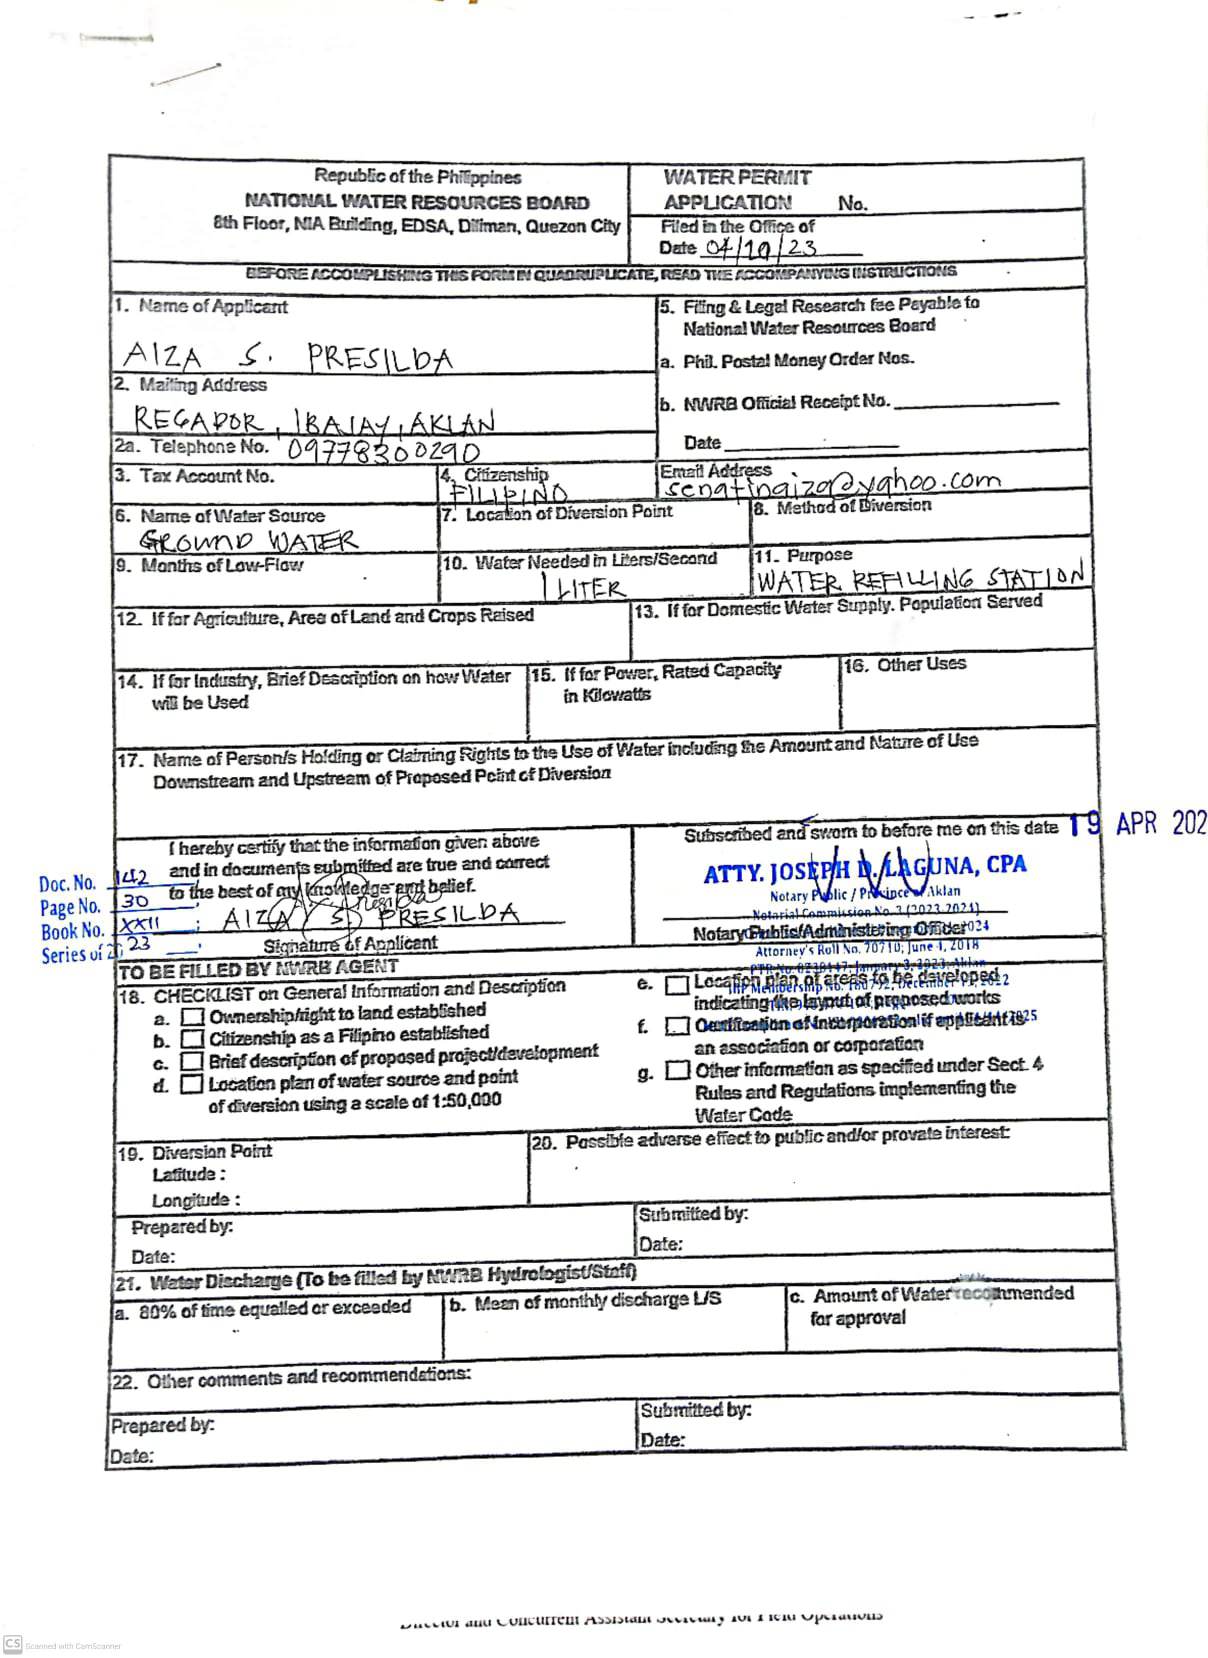 Republic of the Philippines
NATIONAL WATER RESOURCES BOARD
8th Floor, NIA Building, EDSA, Diliman, Quezon City
WATER PERMIT
APPLICATION No.
Filed in the Office of
Date 04/19/23
BEFORE ACCOMPLISHING THIS FORM IN QUADRUPLICATE, READ THE ACCOMPANYING INSTRUCTIONS
1. Name of Applicant
AIZA S. PRESILDA
2. Mailing Address
REGADOR, IBAJAY, AKLAN
2a. Telephone No. 09778300290
5. Filing & Legal Research fee Payable to
National Water Resources Board
a. Phil. Postal Money Order Nos.
b. NWRB Official Receipt No.
Date
3. Tax Account No.
4. Citizenship
FILIPINO
Email Address
senatinaiza@yahoo.com
6. Name of Water Source
GROUND WATER
7. Location of Diversion Point
8. Method of Diversion
9. Months of Low-Flow
10. Water Needed in Liters/Second
1 LITER
11. Purpose
WATER REFILLING STATION
12. If for Agriculture, Area of Land and Crops Raised
13. If for Domestic Water Supply. Population Served
14. If for Industry, Brief Description on how Water
will be Used
15. If for Power, Rated Capacity
in Kilowatts
16. Other Uses
17. Name of Person/s Holding or Claiming Rights to the Use of Water including the Amount and Nature of Use
Downstream and Upstream of Proposed Point of Diversion
I hereby certify that the information given above
and in documents submitted are true and correct
to the best of my knowledge and belief.
AIZA S. PRESILDA
Signature of Applicant
Doc. No. 142
Page No. 30
Book No. XXII
Series of 2023
Subscribed and sworn to before me on this date 19 APR 202
ATTY. JOSEPH D. LAGUNA, CPA
Notary Public / Province Aklan
Notarial Commission No. 3 (2023-2024)
Notary Public/Administering Officer
Attorney's Roll No. 70710; June 1, 2018
TO BE FILLED BY NWRB AGENT
18. CHECKLIST on General Information and Description
a. Ownership/right to land established
b. Citizenship as a Filipino established
c. Brief description of proposed project/development
d. Location plan of water source and point
of diversion using a scale of 1:50,000
e. Location plan of areas to be developed
indicating the layout of proposed works
f. Certification of incorporation if applicant is
an association or corporation
g. Other information as specified under Sect. 4
Rules and Regulations implementing the
Water Code
19. Diversion Point
Latitude :
Longitude :
20. Possible adverse effect to public and/or provate interest:
Prepared by:
Date:
Submitted by:
Date:
21. Water Discharge (To be filled by NWRB Hydrologist/Staff)
a. 80% of time equalled or exceeded
b. Mean of monthly discharge L/S
c. Amount of Water recommended
for approval
22. Other comments and recommendations:
Prepared by:
Date:
Submitted by:
Date:
Director and Concurrent Assistant Secretary for Field Operations
CS Scanned with CamScanner